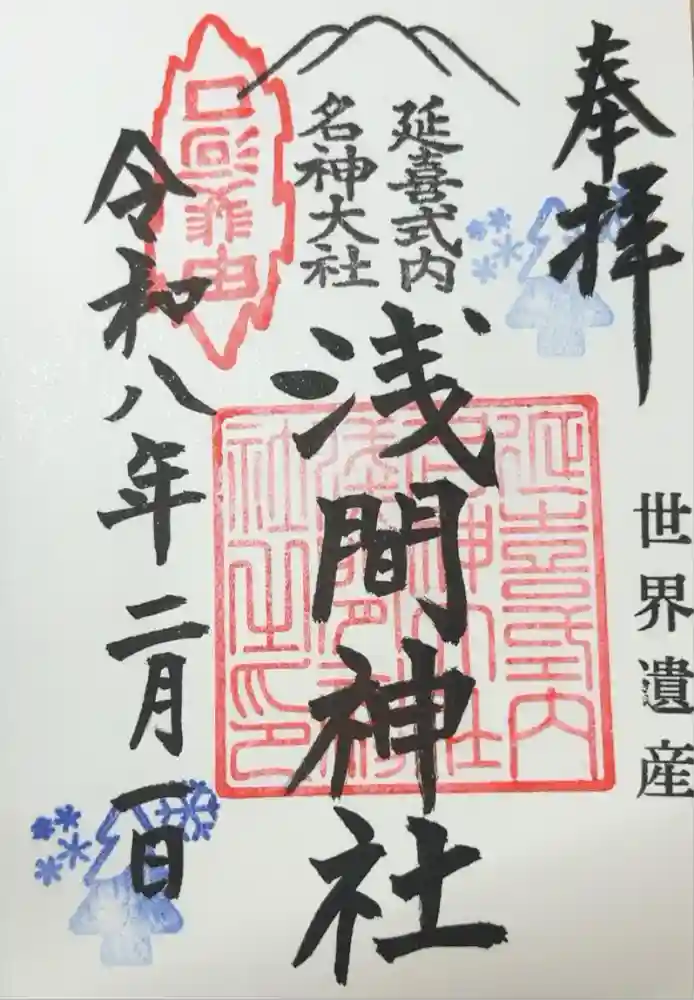 奉拝
世界遺産
延喜式内
名神大社
浅間神社
令和八年二月一日
延喜式内
名神大社